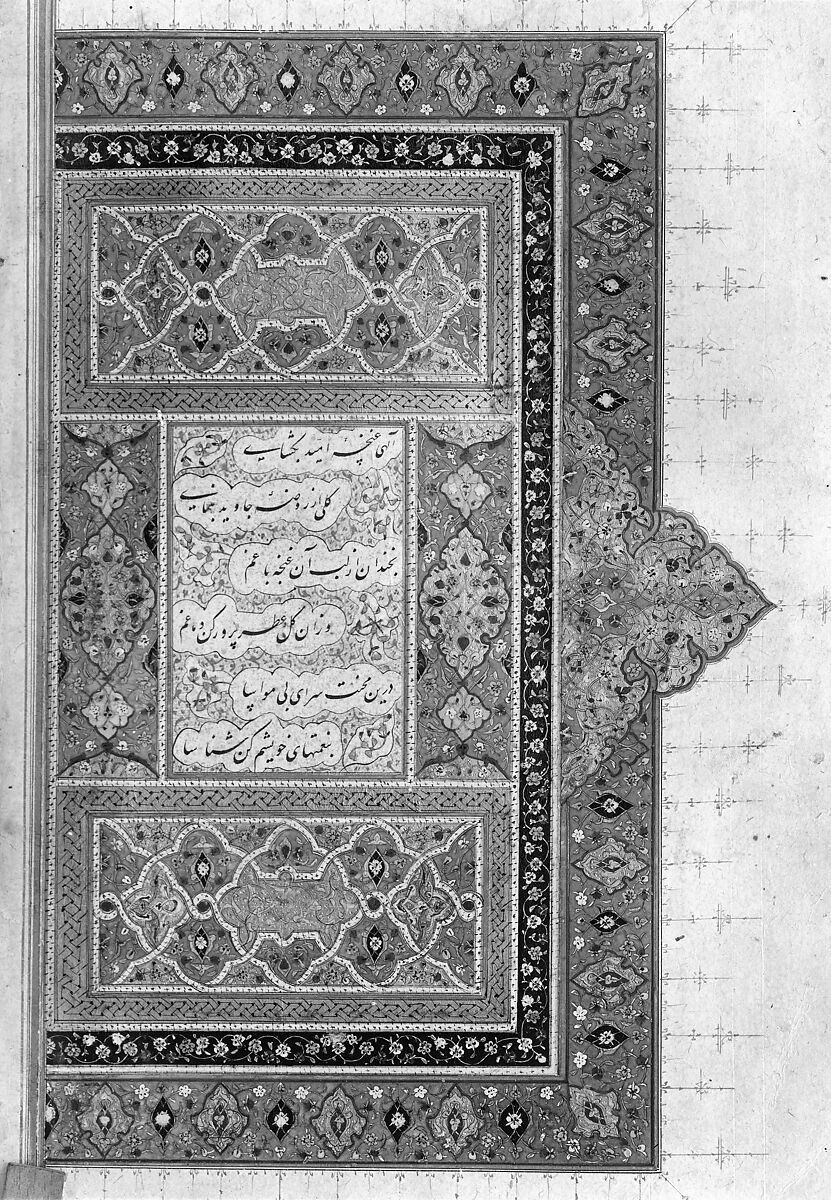 الهی غنچه امید بکشای
کلی از روضه جاوید بنمای
بخندان از لب آن غنچه باغم
وزان کل عطر پرور کن دماغم
درین محنت سرای بی مواسا
بنعمتهای خویشم کن شناسا